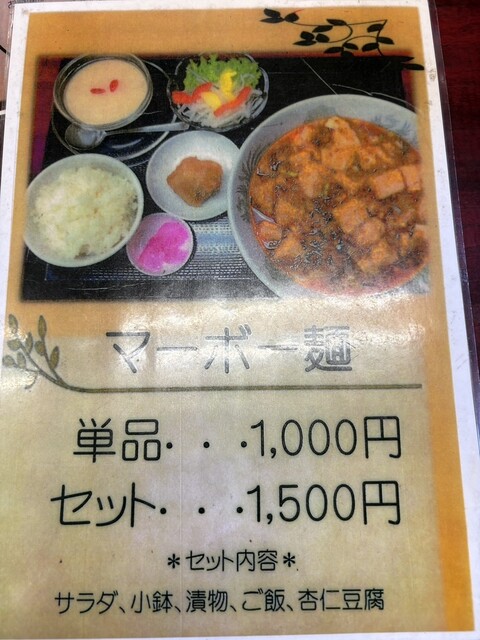 マーボー麺
単品・・・1,000円
セット・・・1,500円
＊セット内容＊
サラダ、小鉢、漬物、ご飯、杏仁豆腐